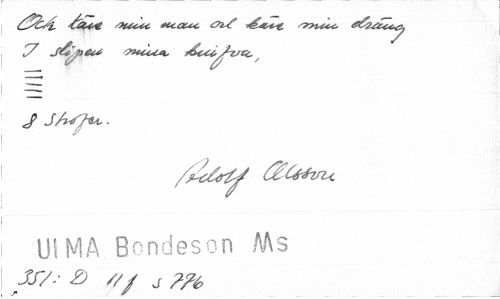 Och käre min man och käre min dräng
I slipen mina knifva,
8 Strofer.
Adolf Olsson
ULMA Bondeson Ms
351: D 11 f s 776